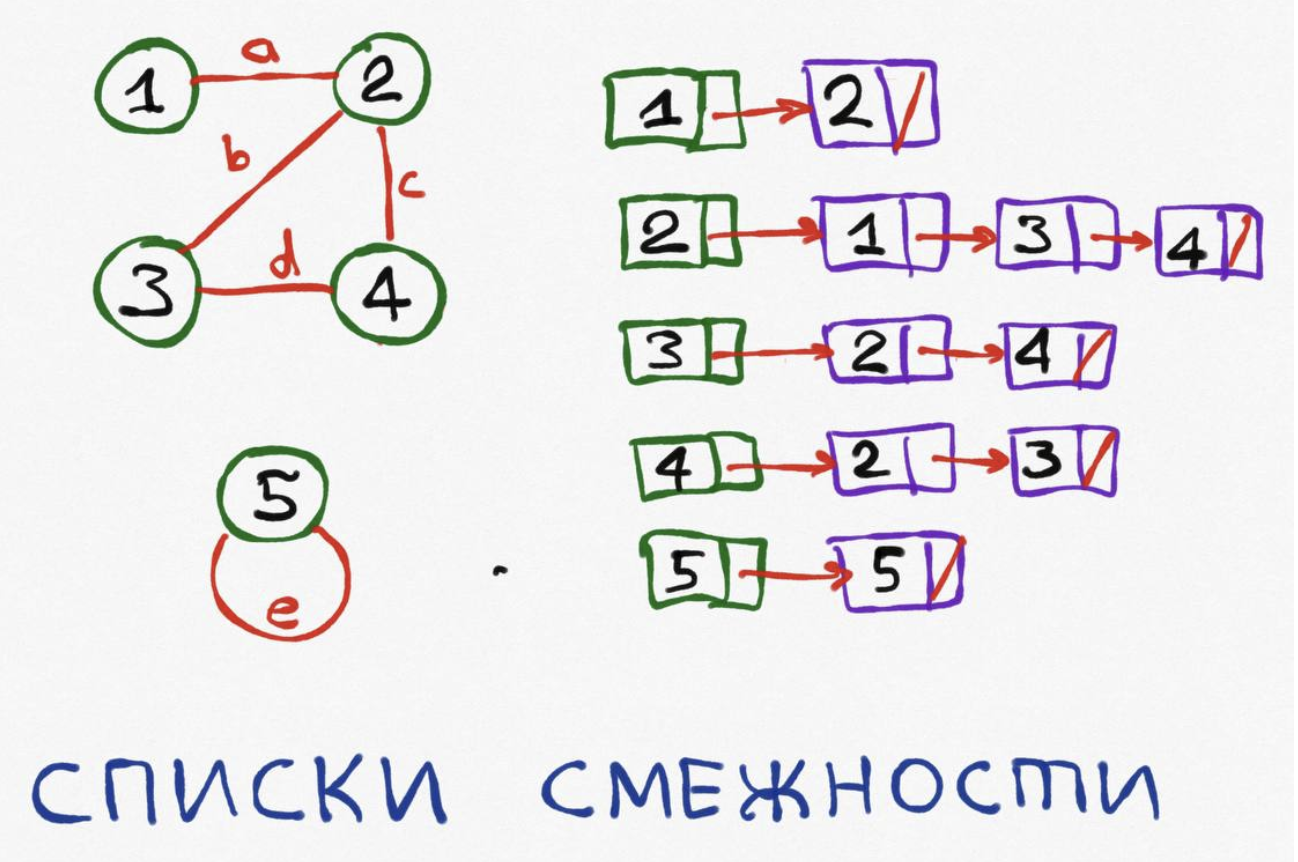 1 a 2
b c
3 d 4
5
e
1 2
2 1 3 4
3 2 4
4 2 3
5 5
СПИСКИ СМЕЖНОСТИ